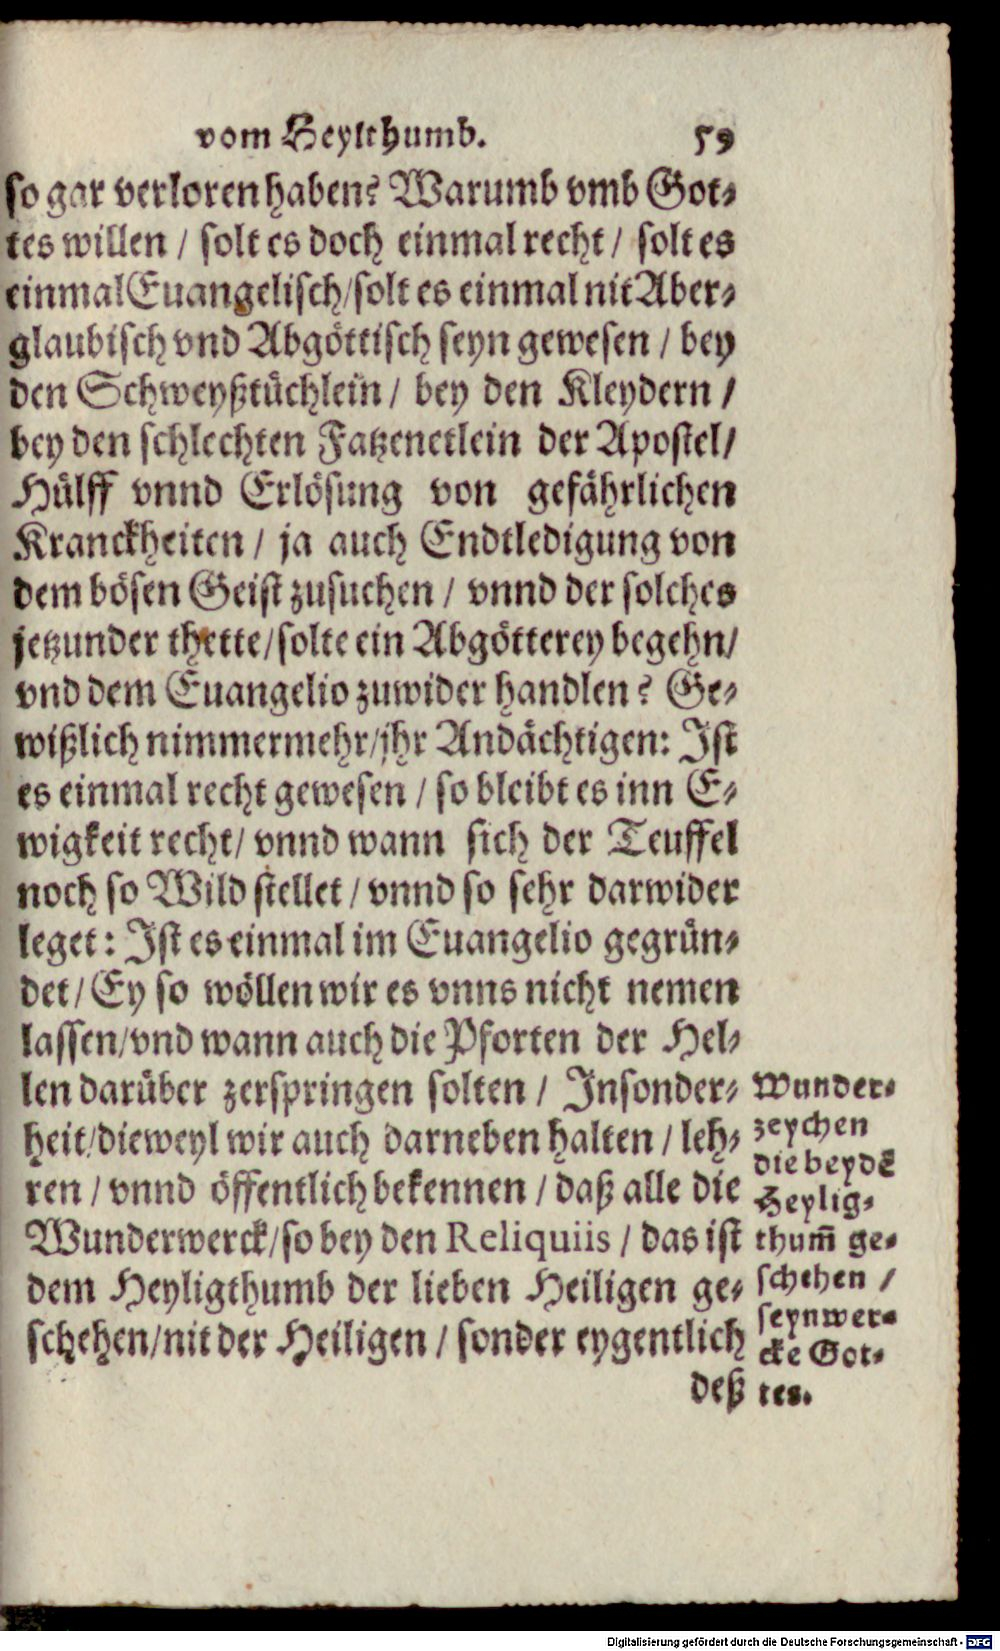 vom Heylthumb. 59
so gar verloren haben? Warumb vmb Got-
tes willen / solt es doch einmal recht / solt es
einmal Euangelisch/solt es einmal nit Aber-
glaubisch vnd Abgöttisch seyn gewesen / bey
den Schweyßtüchlein / bey den Kleydern /
bey den schlechten Fatzenetlein der Apostel/
Hülff vnnd Erlösung von gefährlichen
Kranckheiten / ja auch Endtledigung von
dem bösen Geist zusuchen / vnnd der solches
jetzunder thette/solte ein Abgötterey begehn/
vnd dem Euangelio zuwider handlen? Ge-
wißlich nimmermehr/jhr Andächtigen: Ist
es einmal recht gewesen / so bleibt es inn E-
wigkeit recht/ vnnd wann sich der Teuffel
noch so Wild stellet / vnnd so sehr darwider
leget: Ist es einmal im Euangelio gegrün-
det/ Ey so wöllen wir es vnns nicht nemen
lassen/vnd wann auch die Pforten der Hel-
len darüber zerspringen solten / Insonder-
heit/dieweyl wir auch darneben halten / leh-
ren / vnnd öffentlich bekennen / daß alle die
Wunderwerck/so bey den Reliquiis / das ist
dem Heyligthumb der lieben Heiligen ge-
schehen/nit der Heiligen / sonder eygentlich
deß
Wunder-
zeychen
die beydẽ
Heylig-
thum̃ ge-
schehen /
seynwer-
cke Got-
tes.
Digitalisierung gefördert durch die Deutsche Forschungsgemeinschaft - DFG